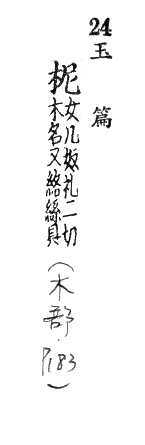 24
玉篇
柅女几奴礼二切
木名又絡絲具
(木部.P183)